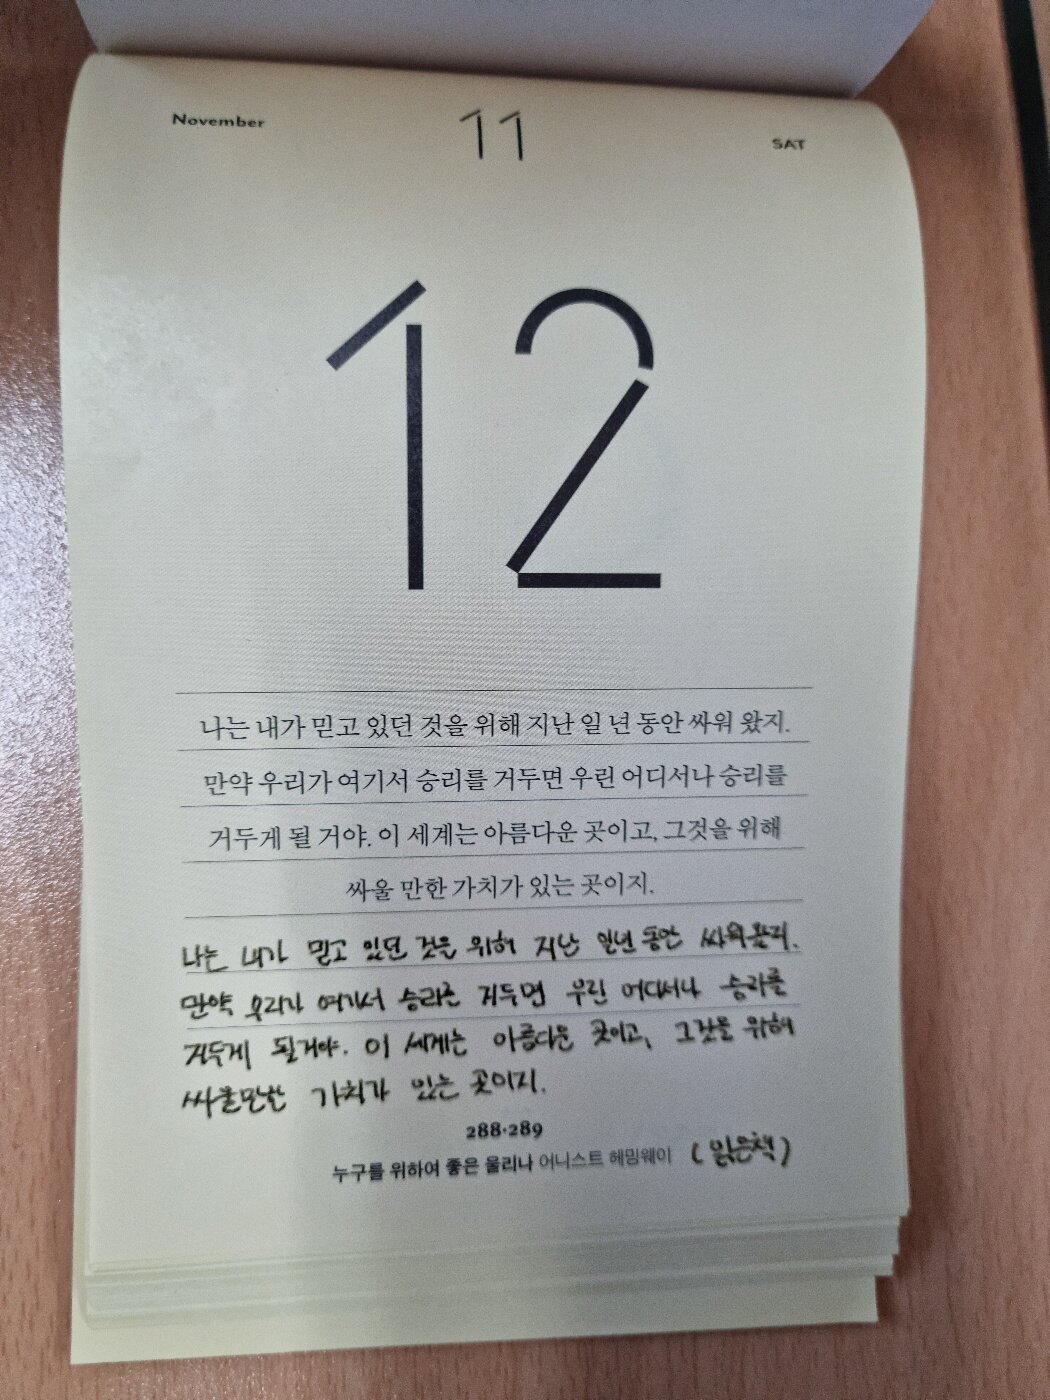 November 11 SAT
12
나는 내가 믿고 있던 것을 위해 지난 일 년 동안 싸워 왔지.
만약 우리가 여기서 승리를 거두면 우린 어디서나 승리를
거두게 될 거야. 이 세계는 아름다운 곳이고, 그것을 위해
싸울 만한 가치가 있는 곳이지.
나는 내가 믿고 있던 것을 위해 지난 일년 동안 싸워왔지.
만약 우리가 여기서 승리를 거두면 우린 어디서나 승리를
거두게 될거야. 이 세계는 아름다운 곳이고, 그것을 위해
싸울만한 가치가 있는 곳이지.
288·289
누구를 위하여 좋은 울리나 어니스트 헤밍웨이 (읽은책)